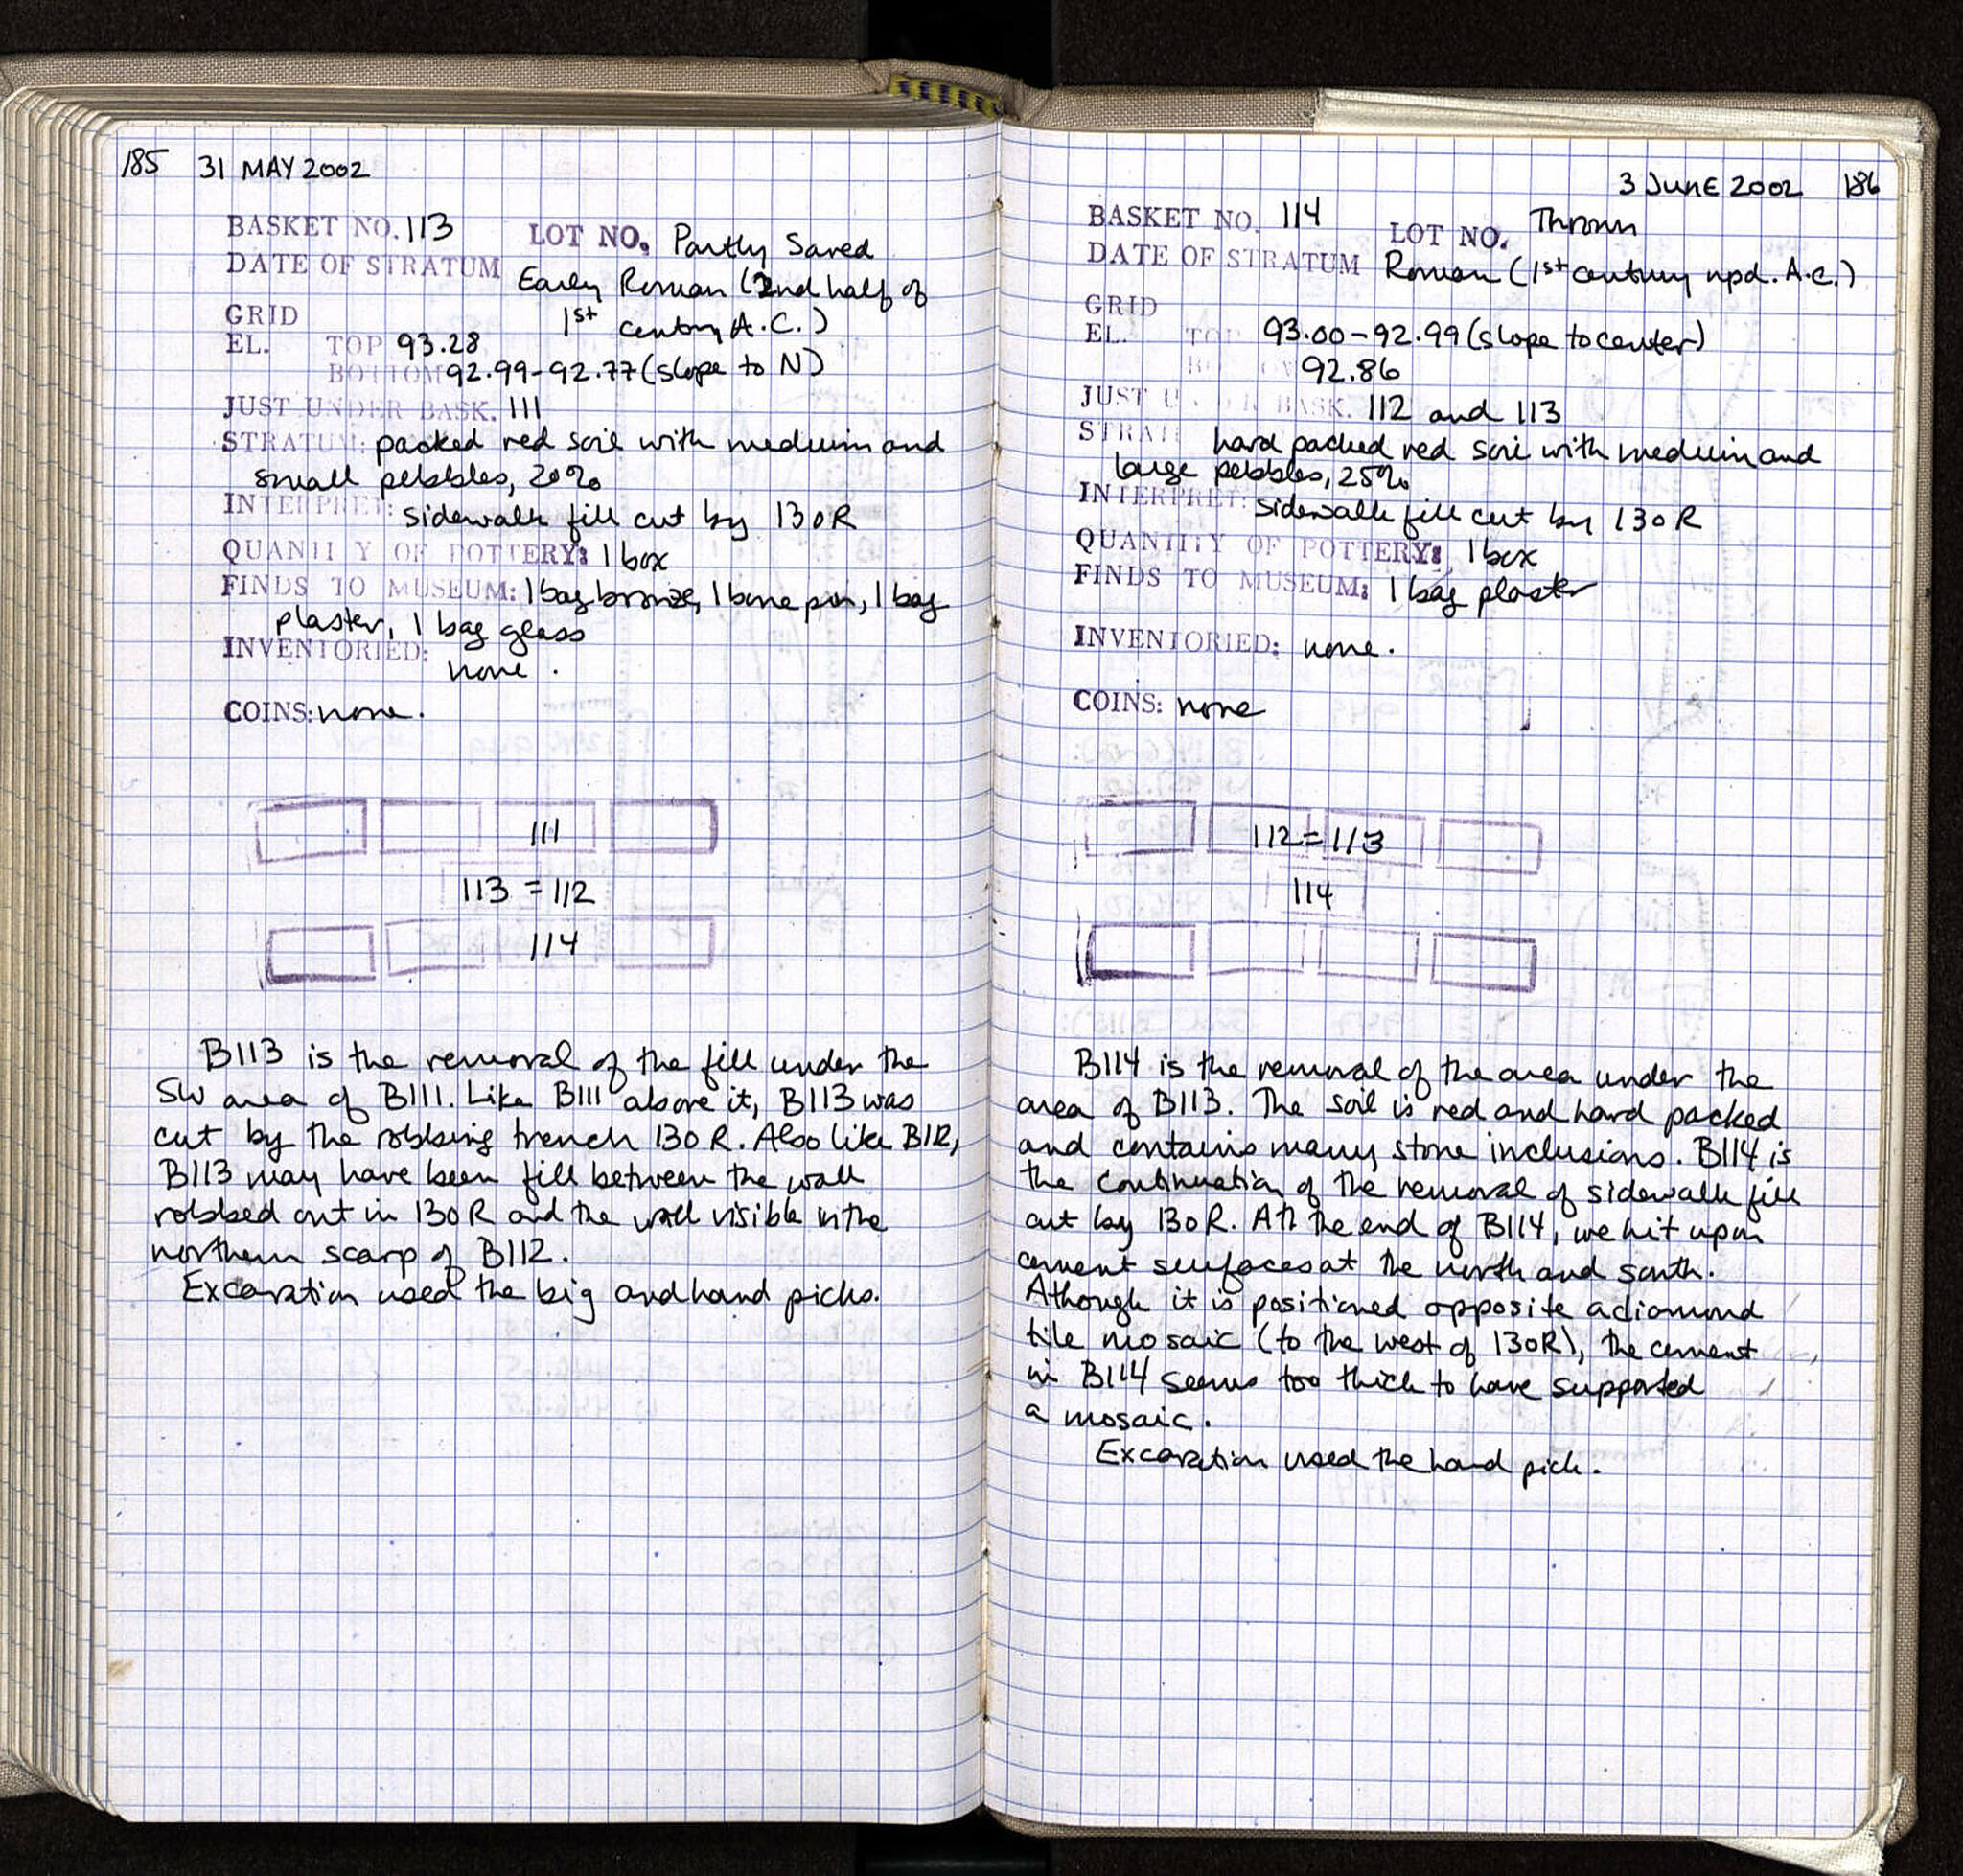 185 31 MAY 2002
BASKET NO. 113 LOT NO. Partly Saved
DATE OF STRATUM Early Roman (2nd half of
1st century A.C.)
GRID
EL. TOP 93.28
BOTTOM 92.99-92.77 (slope to N)
JUST UNDER BASK. 111
STRATUM: packed red soil with medium and
small pebbles, 20%
INTERPRET: sidewalk fill cut by 130R
QUANTITY OF POTTERY: 1 box
FINDS TO MUSEUM: 1 bag bronze, 1 bone pin, 1 bag
plaster, 1 bag glass
INVENTORIED:
none.
COINS: none.
111
113 = 112
114
B113 is the removal of the fill under the
SW area of B111. Like B111 above it, B113 was
cut by the robbing trench 130R. Also like B112,
B113 may have been fill between the wall
robbed out in 130R and the wall visible in the
northern scarp of B112.
Excavation used the big and hand picks.
3 JUNE 2002 186
BASKET NO. 114 LOT NO. Thrown
DATE OF STRATUM Roman (1st century npd. A.C.)
GRID
EL. TOP 93.00-92.99 (slope to center)
BOTTOM 92.86
JUST UNDER BASK. 112 and 113
STRAT hard packed red soil with medium and
large pebbles, 25%
INTERPRET: sidewalk fill cut by 130R
QUANTITY OF POTTERY: 1 box
FINDS TO MUSEUM: 1 bag plaster
INVENTORIED: none.
COINS: none
112 = 113
114
B114 is the removal of the area under the
area of B113. The soil is red and hard packed
and contains many stone inclusions. B114 is
the continuation of the removal of sidewalk fill
cut by 130R. At the end of B114, we hit upon
cement surfaces at the north and south.
Athough it is positioned opposite a diamond
tile mosaic (to the west of 130R), the cement
in B114 seems too thick to have supported
a mosaic.
Excavation used the hand pick.